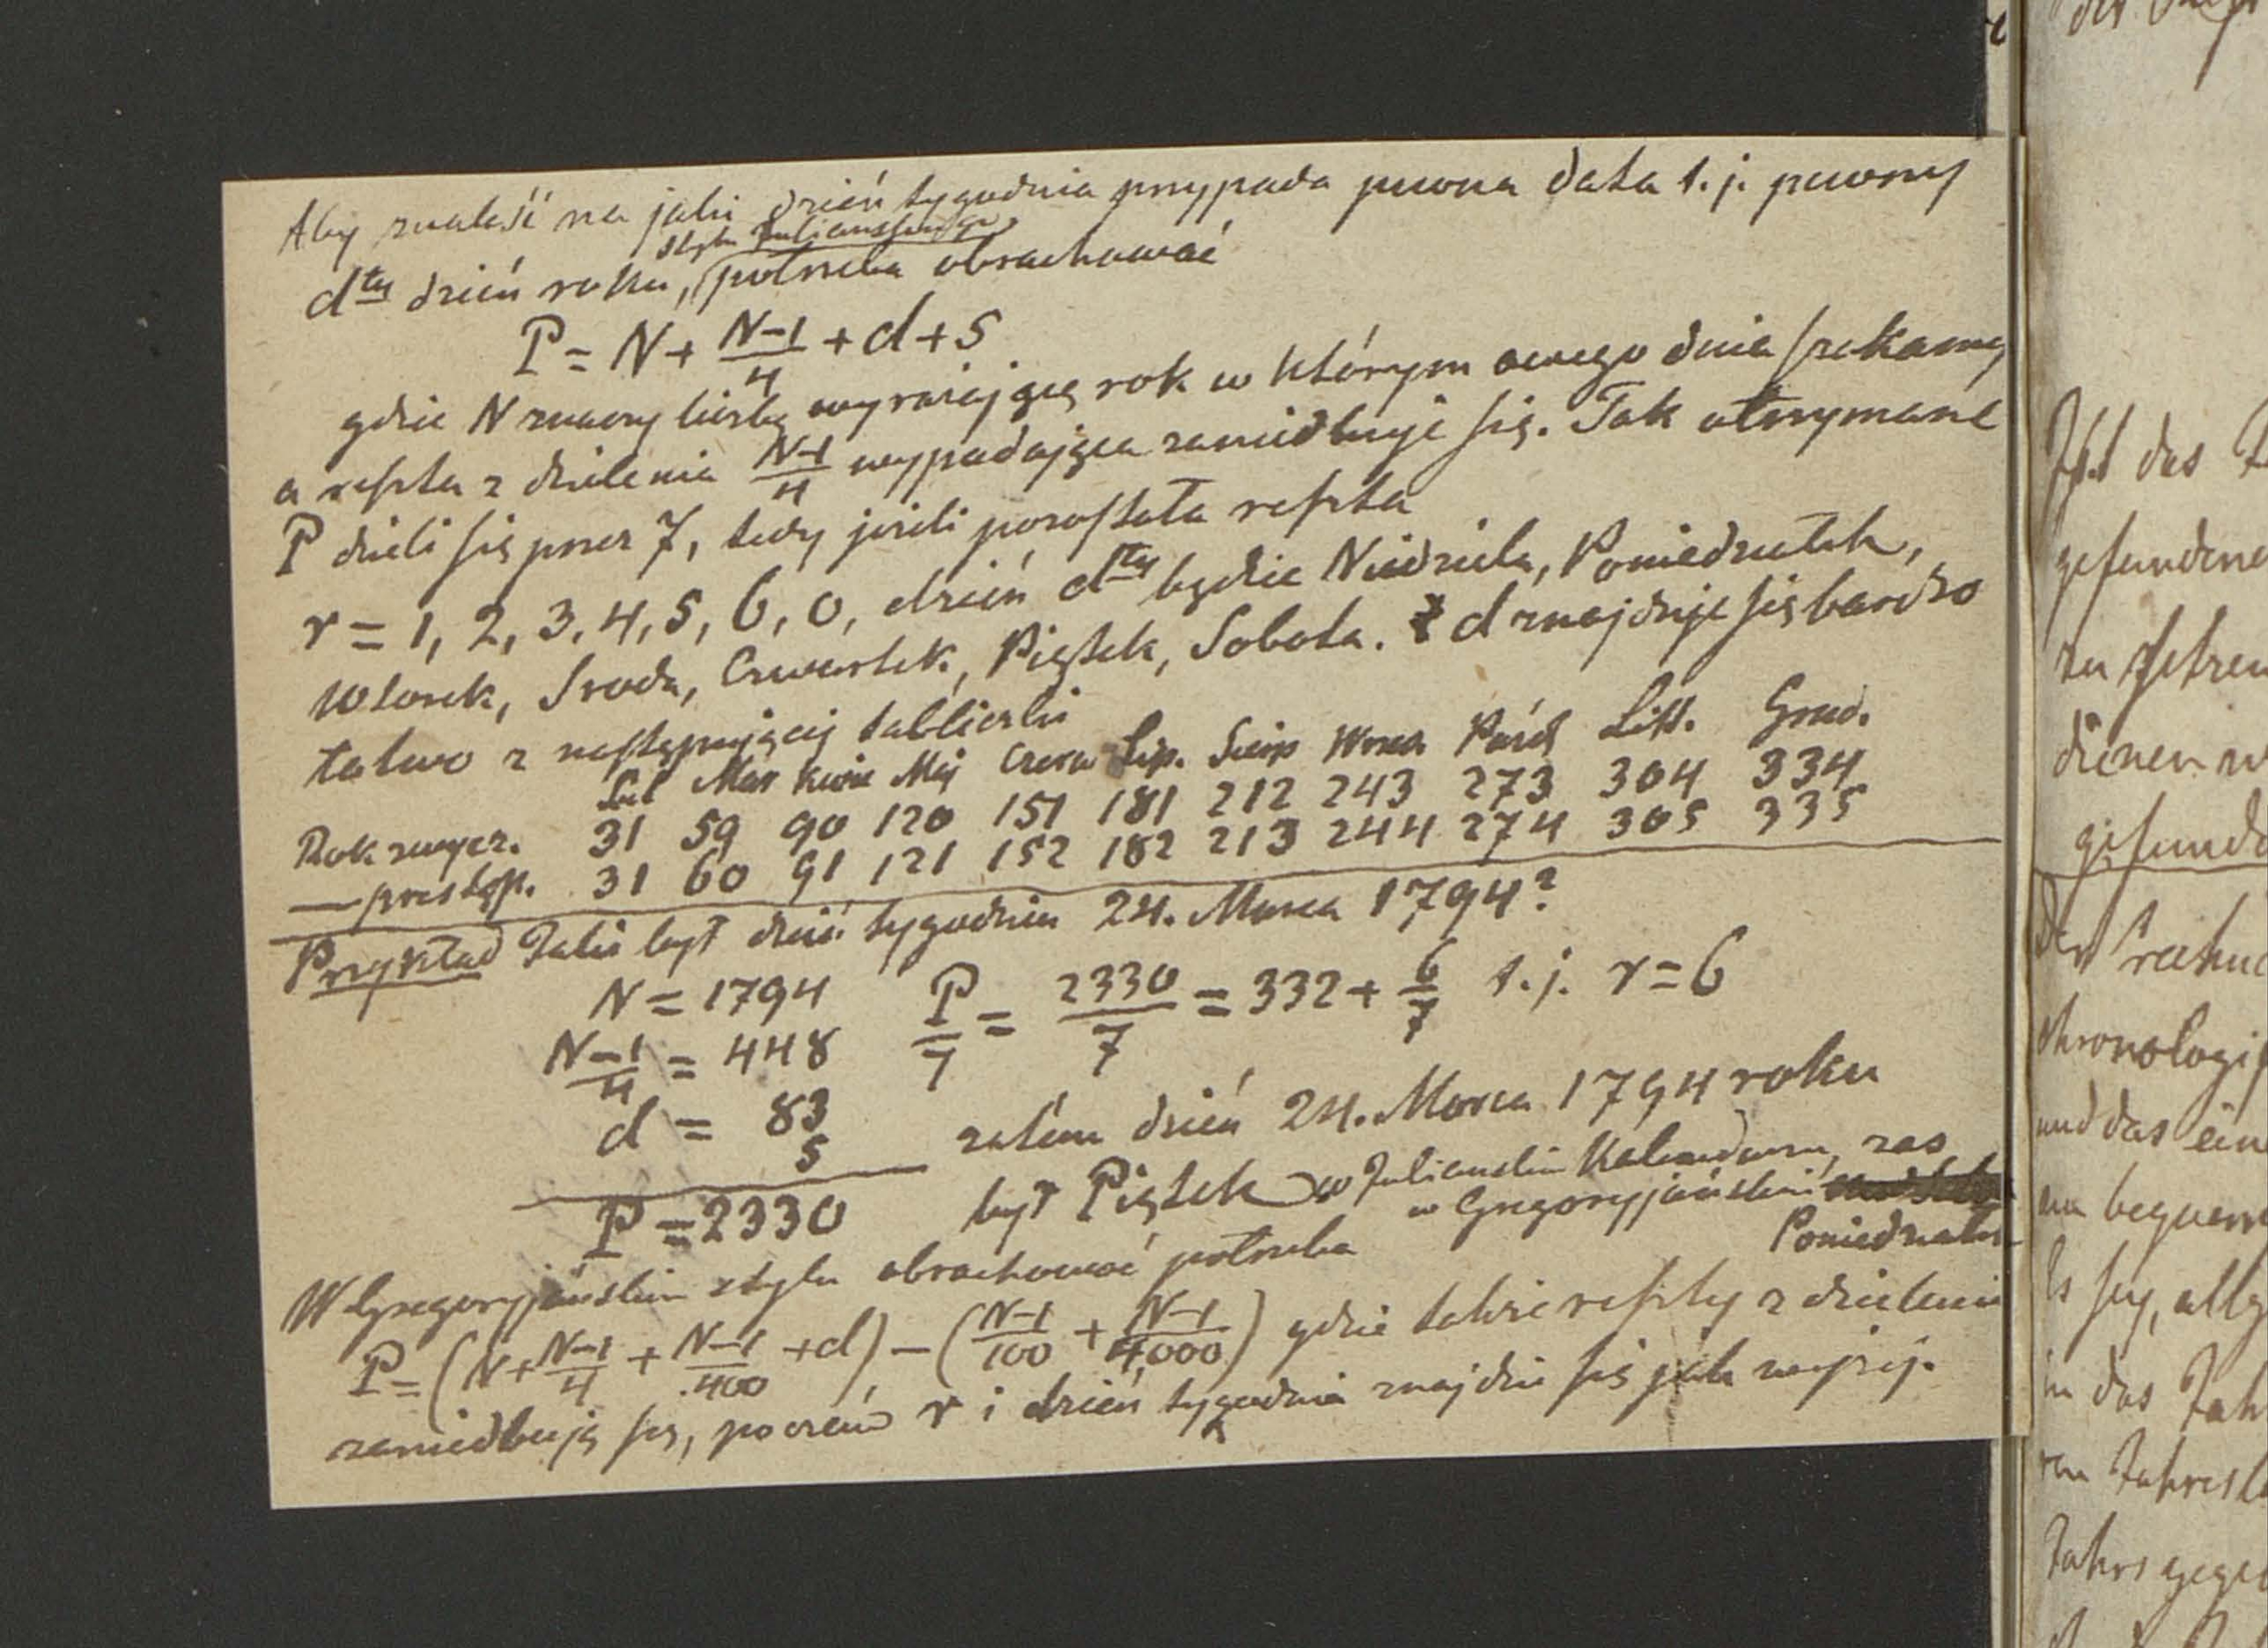 Aby znaleść na jaki dzień tygodnia przypada pewna data t.j. pewny
stylu Juliańskiego
dty dzień roku, potrzeba obrachować
P = N + (N-1)/4 + d + 5
gdzie N znaczy liczbę wyrażającą rok w którym owego dnia szukamy
a reszta z dzielenia (N-1)/4 wypadająca zaniedbuje się. Tak otrzymane
P dzieli się przez 7, tedy jeżeli pozostała reszta
r = 1, 2, 3, 4, 5, 6, 0, dzień dty będzie Niedziela, Poniedziałek,
Wtorek, Sroda, Czwartek, Piątek, Sobota. d znajduje się bardzo
łatwo z następującej tabliczki
Lut Mar Kwie Maj Czerw Lip. Sierp Wrzes Paźdź List. Grud.
Rok zwycz. 31 59 90 120 151 181 212 243 273 304 334
— przestęp. 31 60 91 121 152 182 213 244 274 305 335
Przykład Jaki był dzień tygodnia 24. Marca 1794?
N = 1794 P/7 = 2330/7 = 332 + 6/7 t.j. r = 6
(N-1)/4 = 448
d = 83
5 zatém dzień 24. Marca 1794 roku
P = 2330 był Piątek w Juliańskim Kalendarzu, zas
w Gregoryjańskim
Poniedziałek
W Gregoryjańskim stylu obrachować potrzeba
P = (N + (N-1)/4 + (N-1)/400 + d) - ((N-1)/100 + (N-1)/4000) gdzie także reszty z dzielenia
zaniedbują się, poczém r i dzień tygodnia znajdzie się jak wyżej.
Ist das
gefundene
zu setzen
dienen
gefunde
der rechn
chronologis
und das ein
bequem
in das Jah
Jahres
Jahrs gege